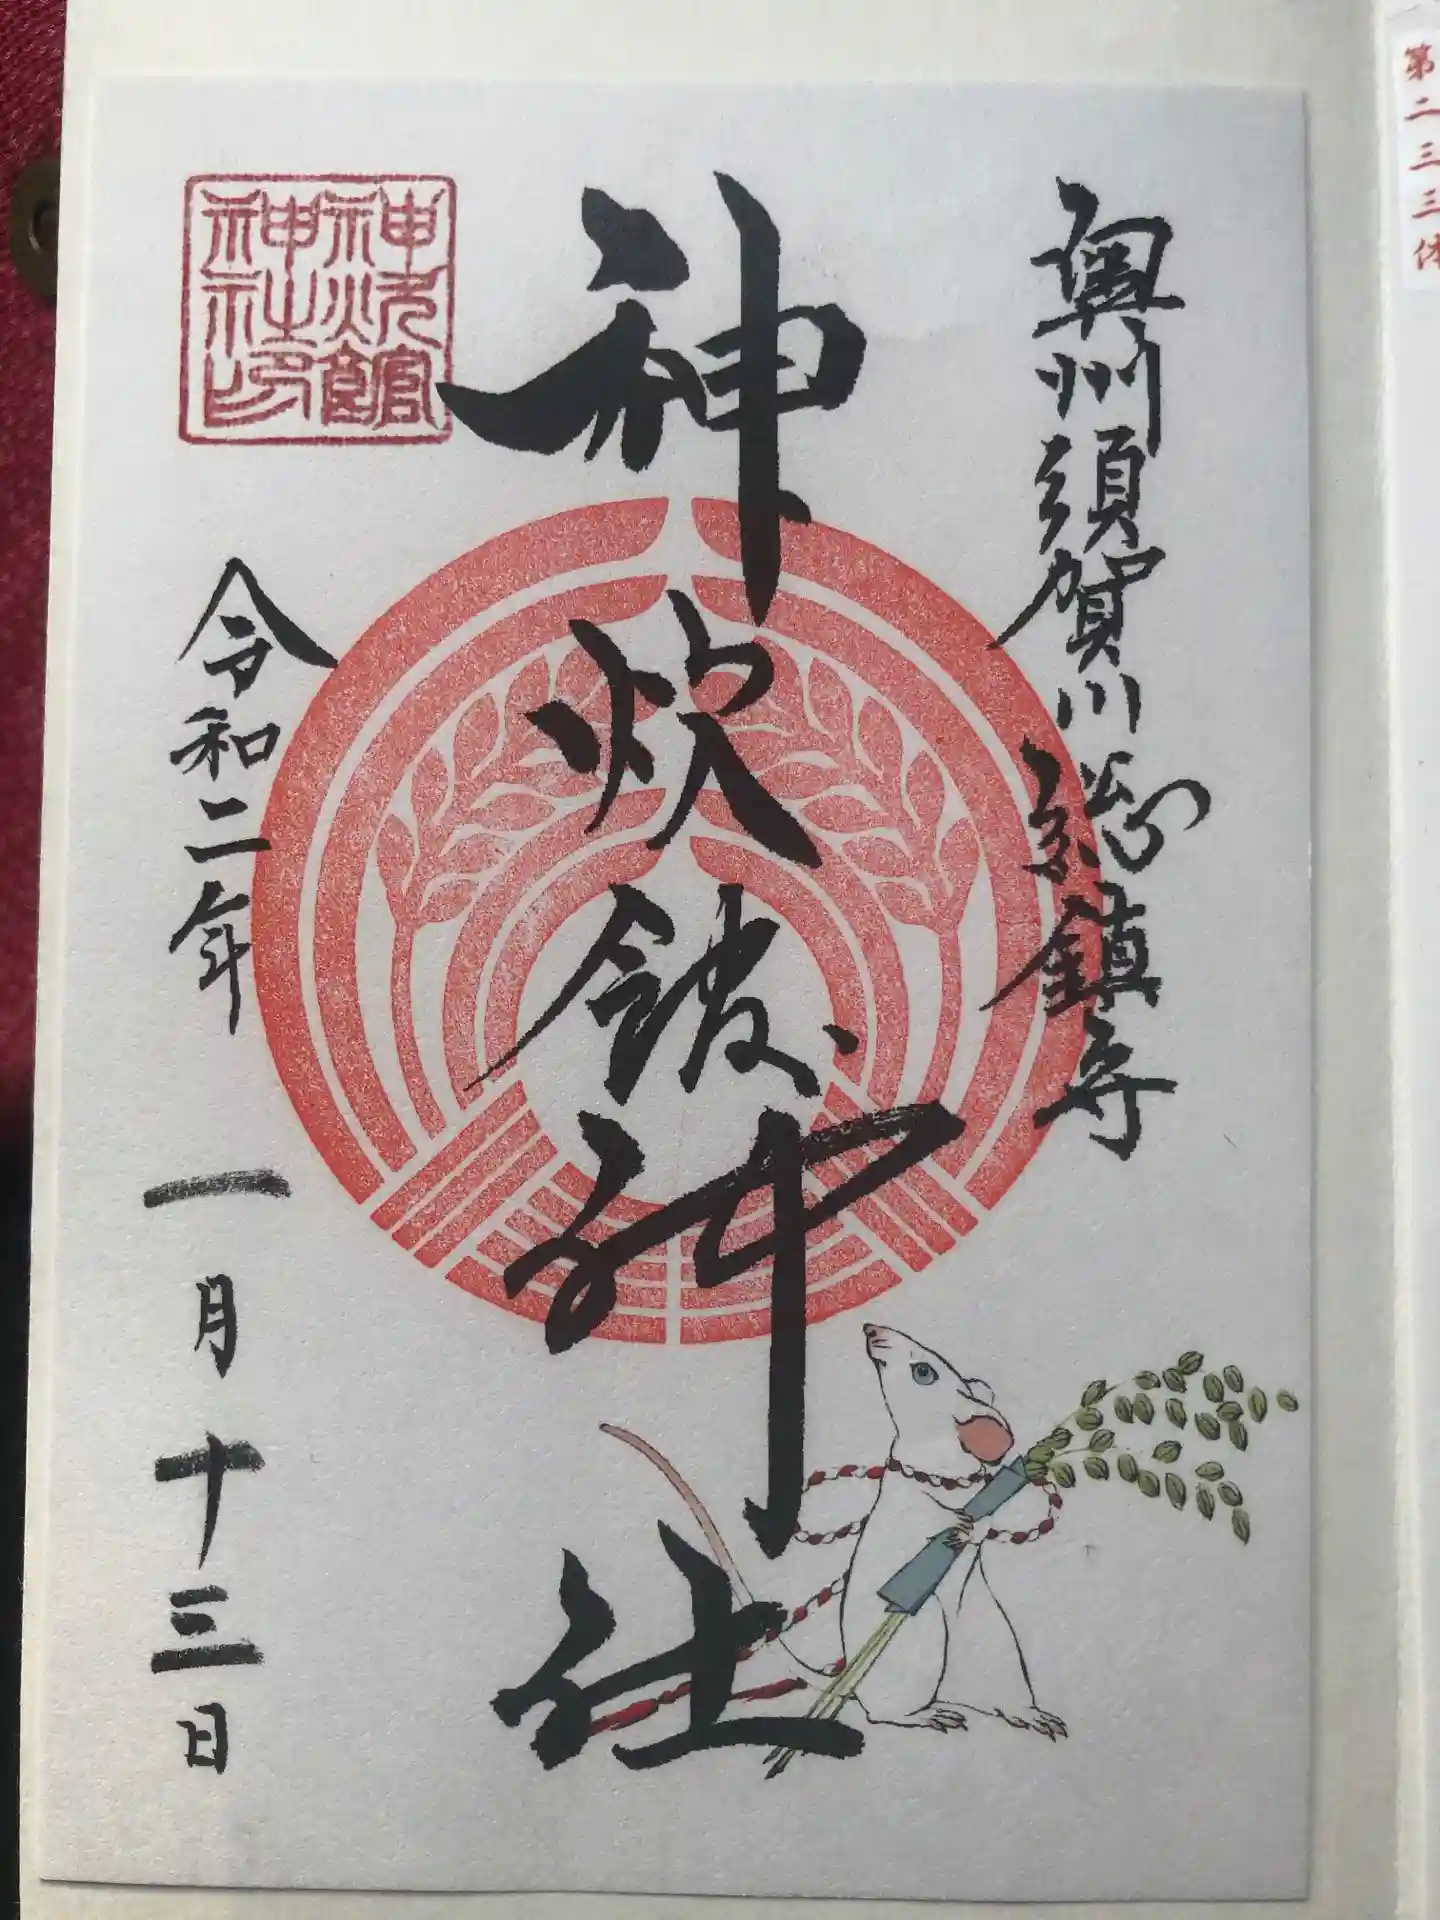 第二三三体
奥州須賀川総鎮守
神炊館神社
神炊館
神社印
令和二年一月十三日